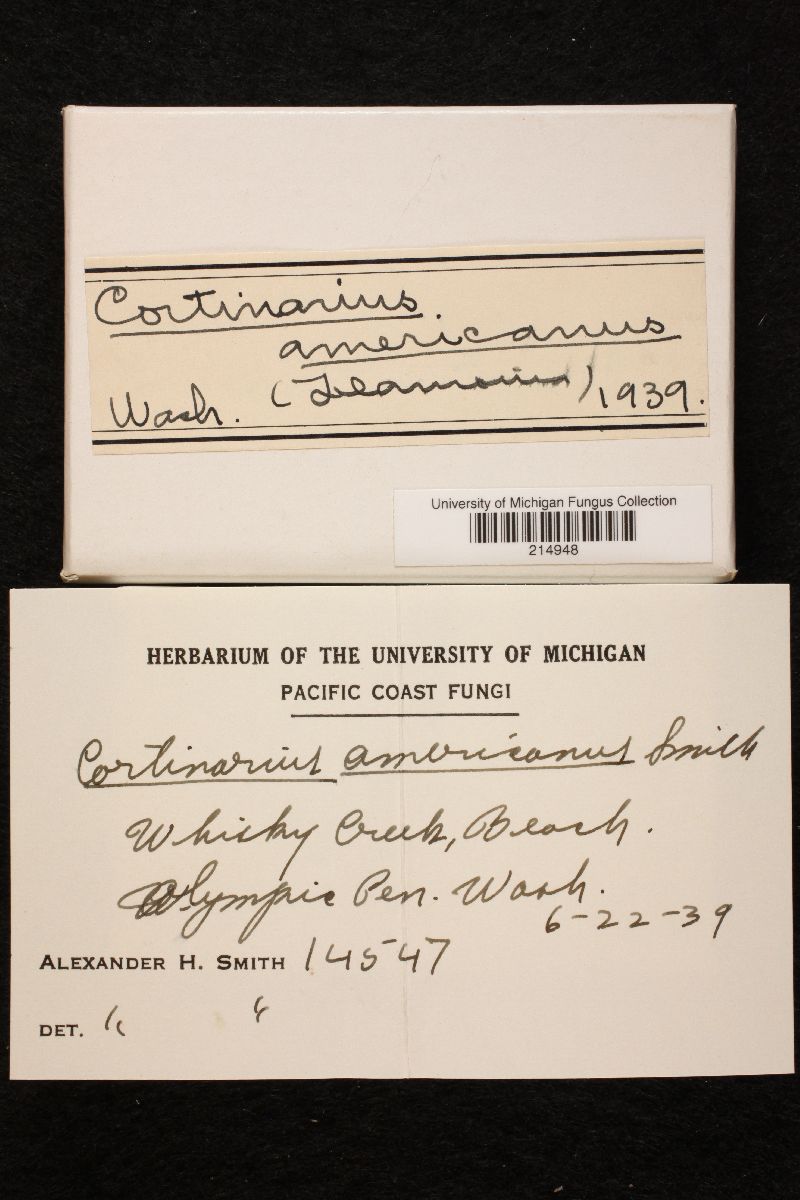 Cortinarius
americanus
Wash. ( ) 1939.
University of Michigan Fungus Collection
214948
HERBARIUM OF THE UNIVERSITY OF MICHIGAN
PACIFIC COAST FUNGI
Cortinarius americanus Smith
Whisky Creek, Beach.
Olympic Pen. Wash.
6-22-39
ALEXANDER H. SMITH 14547
DET. " "